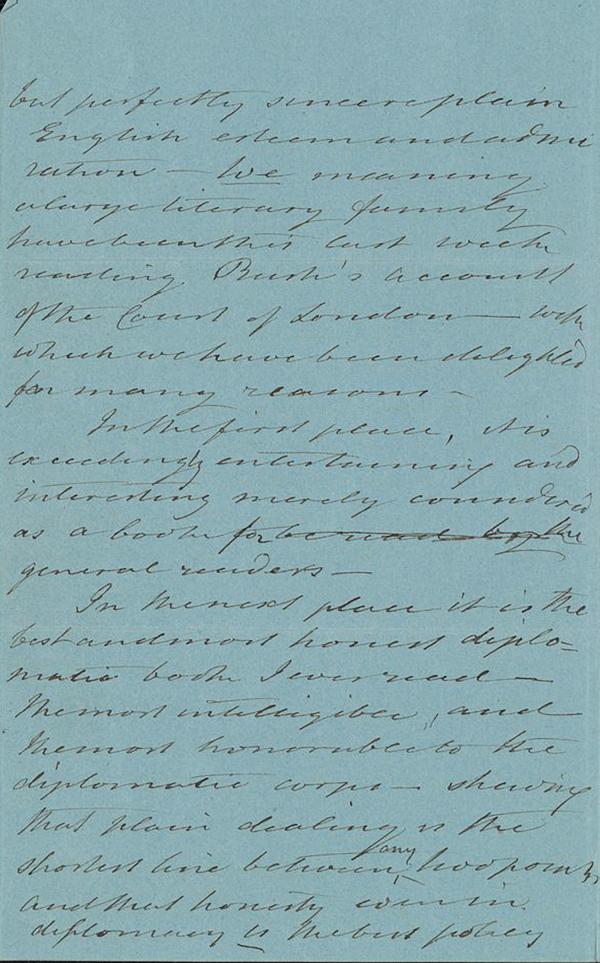 but perfectly sincere plain
English esteem and admi
ration — We meaning
a large literary family
have been this last week
reading Rush's account
of the Court of London — with
which we have been delighted
for many reasons —
In the first place, it is
exceedingly entertaining and
interesting merely considered
as a book for be read by the
general readers —
In the next place it is the
best and most honest diplo=
matic book I ever read —
The most intelligible, and
the most honorable to the
diplomatic corps — shewing
that plain dealing is the
shortest line between any two points
and that honesty even in
diplomacy is the best policy